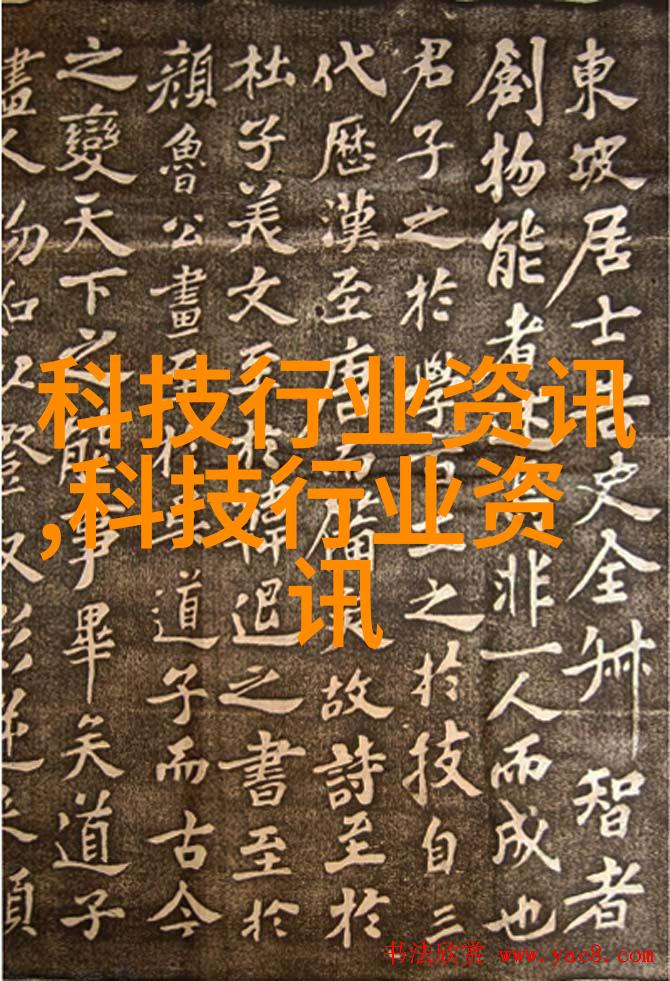 東坡居士史全叔智者
創物能者述焉非一人而成也
君子之於學百工之於技自三
代歷漢至唐而備矣故詩至於
杜子美文至於韓退之書至於
顏魯公畫至於吳道子而古今
之變天下之能事畢矣道子
畫人物如以燈取影逆來順
科技行业资讯
,科技行业资
讯
书法欣赏 www.yac8.com